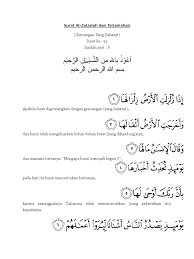 Surat Al-Zalzalah dan Terjemahan
(Goncangan Yang Dahsyat)
Surat ke : 99
Jumlah ayat : 8
بِسْمِ اللهِ الرَّحْمٰنِ الرَّحِيْمِ
إِذَا زُلْزِلَتِ الْأَرْضُ زِلْزَالَهَا ١
apabila bumi digoncangkan dengan goncangan (yang dahsyat),
وَأَخْرَجَتِ الْأَرْضُ أَثْقَالَهَا ٢
dan bumi telah mengeluarkan beban-beban berat (yang dikandung)nya,
وَقَالَ الْإِنْسَانُ مَا لَهَا ٣
dan manusia bertanya: "Mengapa bumi (menjadi begini)?",
يَوْمَئِذٍ تُحَدِّثُ أَخْبَارَهَا ٤
pada hari itu bumi menceritakan beritanya,
بِأَنَّ رَبَّكَ أَوْحَىٰ لَهَا ٥
karena sesungguhnya Tuhanmu telah memerintahkan (yang sedemikian itu)
kepadanya.
يَوْمَئِذٍ يَصْدُرُ النَّاسُ أَشْتَاتًا لِيُرَوْا أَعْمَالَهُمْ ٦